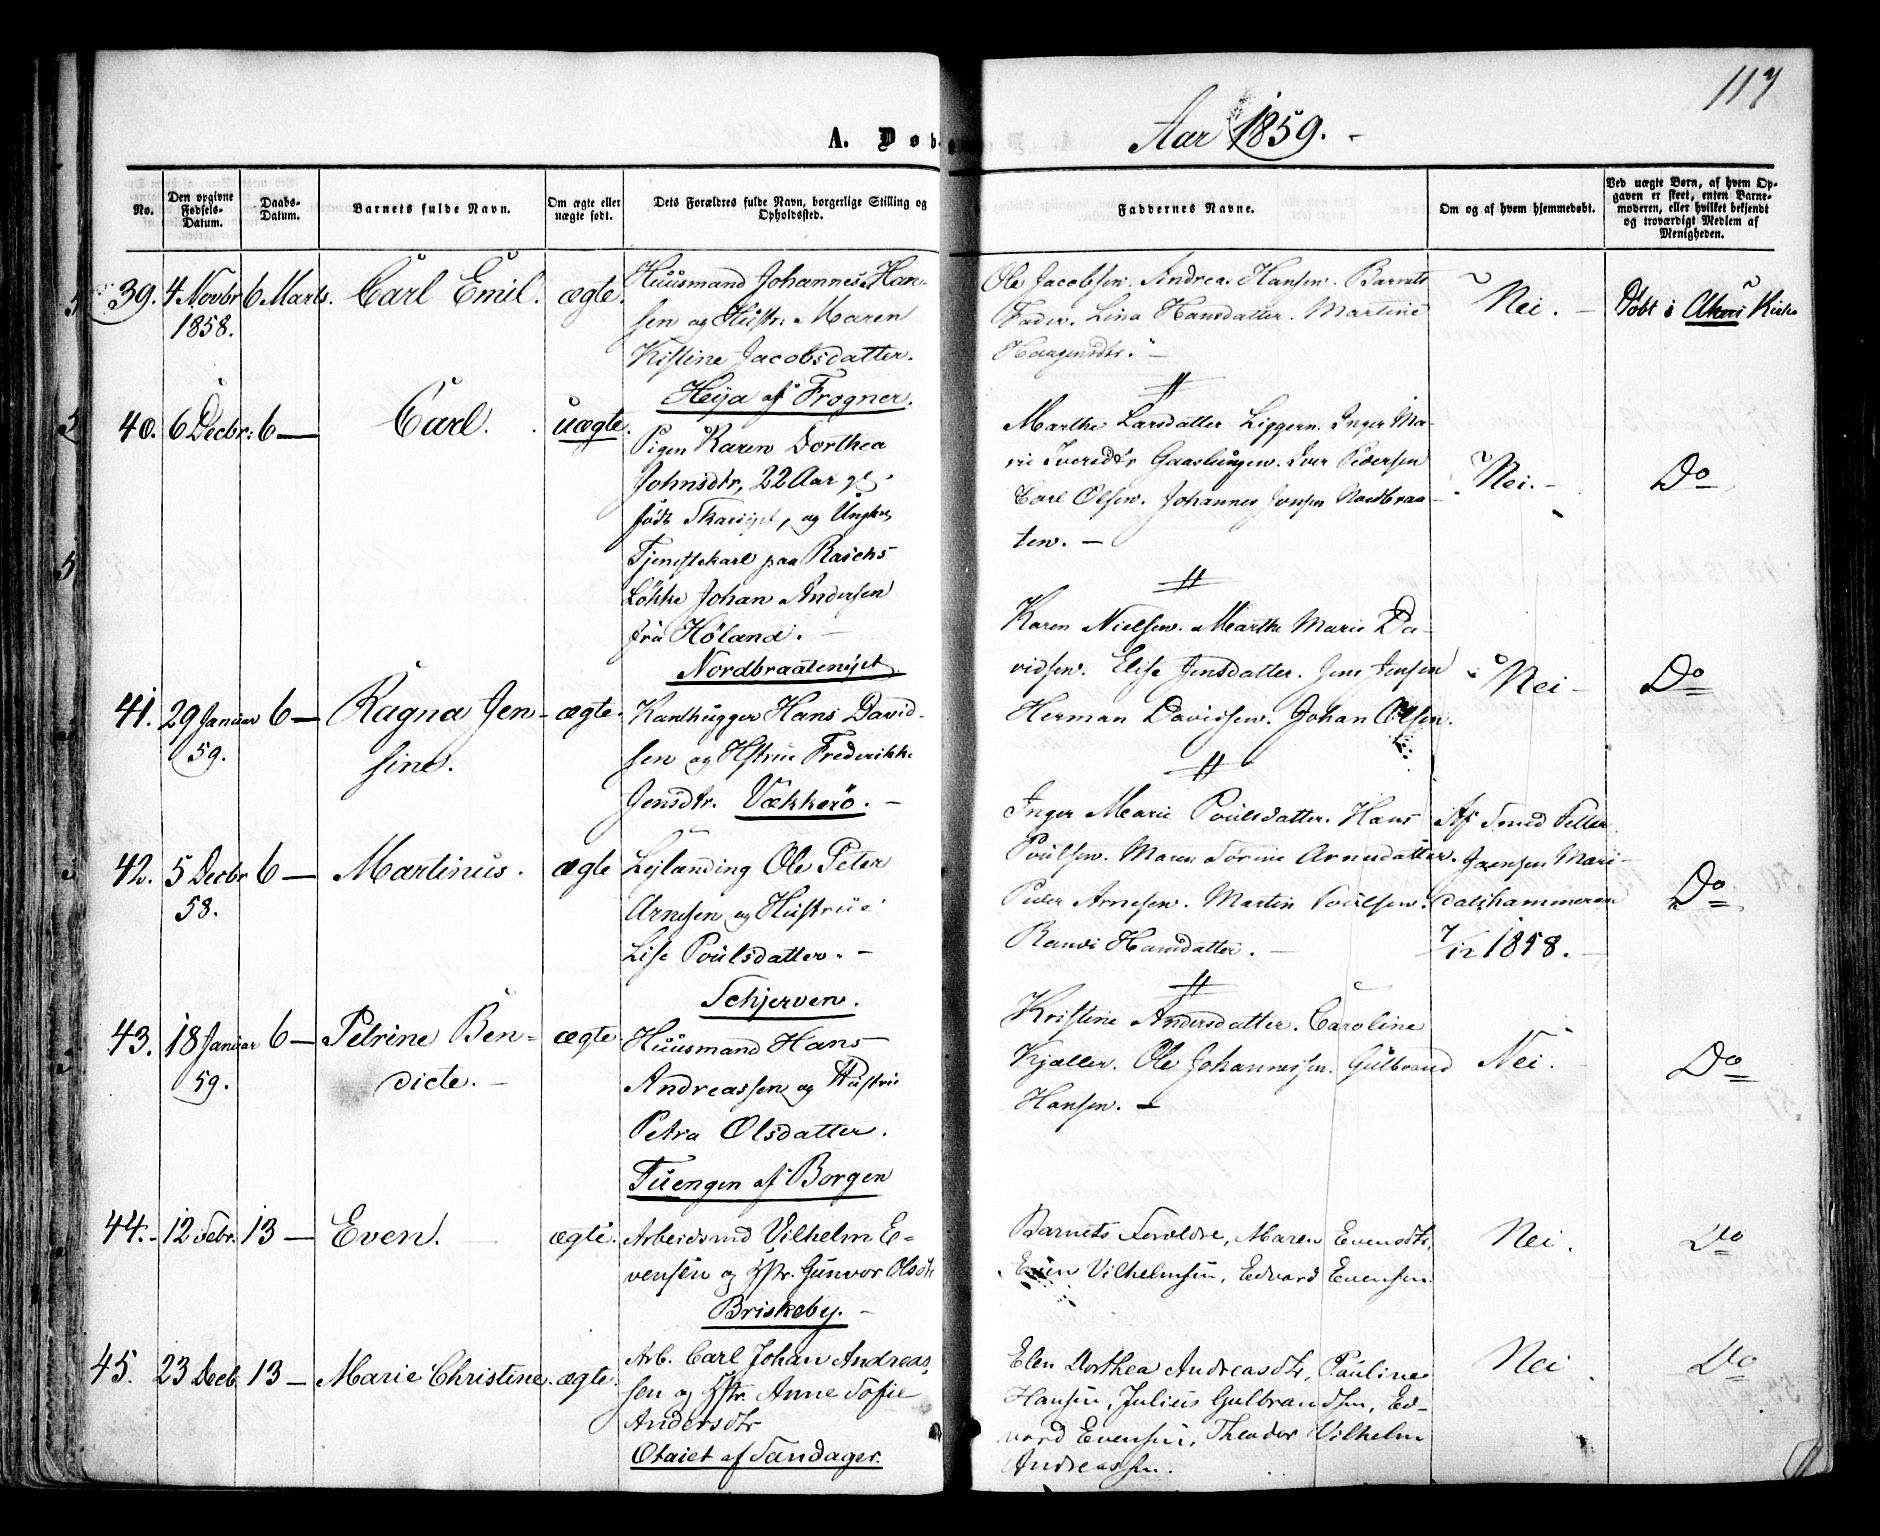 117
A. Døb
Aar 1859.
No.
Den opgivne Fødsels-Datum.
Daabs-Datum.
Barnets fulde Navn.
Om ægte eller uægte født.
Dets Forældres fulde Navn, borgerlige Stilling og Opholdssted.
Faddernes Navne.
Om og af hvem hjemmedøbt.
Ved uægte Børn, af hvem Opgaven er skeet, enten Barnemoderen, eller hvilket bekjendt og troværdigt Medlem af Menigheden.
39. 4 Novbr 6 Marts. Carl Emil. ægte.
1858.
Huusmand Johannes Han-
sen og Hustr. Maren
Kistine Jacobsdatter.
Heja af Frogner.
Ole Jacobsen. Andrea Hansen. Barnets
Fader. Lina Hansdatter. Martine
Haagensdtr. –
Nei. –
Døbt i Akers Kirke
40. 6 Decbr: 6 — Carl. uægte.
Pigen Karen Dorthea
Johnsdtr, 22 Aar gl.
født og Ungkrl,
Tjenestekarl paa Raschs
Løkke Johan Andersen
fra Høland. –
Nordbraatenejet
Marthe Larsdatter Liggern. Inger Ma-
rie Iversdtr Gaaslungen. Iver Pedersen
Carl Olsen. Johannes Jensen Nordbraa-
ten. –
Nei. –
Do
41. 29 Januar 6 — Ragna Jen- ægte.
59.
sine.
Kanthugger Hans David-
sen og Hstrue Frederikke
Jensdtr. Vækkerö. –
Karen Nielsen. Marthe Marie Da-
vidsen. Elise Jensdatter. Jens Jensen
Herman Davidsen. Johan Olsen.
Nei –
Do
42. 5 Decbr 6 — Martinus. ægte
58.
Lejlending Ole Peter
Arnesen og Hustrue
Lise Poulsdatter. –
Schjerven.
Inger Marie Poulsdatter. Hans
Poulsen. Maren Sørine Arnesdatter.
Peder Arnesen. Martin Poulsen.
Ranvi Hansdatter. –
Af Smed Petter
Jaensen Mari-
dalshammeren
7/12 1858. –
Do
43. 18 Januar 6 — Petrine Ben- ægte
59.
dicte. –
Huusmand Hans
Andreassen og Hustru
Petra Olsdatter.
Tuengen af Borgen
Kristine Andersdatter. Caroline
Kjøller. Ole Johannessen. Gulbrand
Hansen. –
Nei.
Do
44. 12 Febr. 13 — Even. ægte.
Arbeidsmd Vilhelm E-
vensen og Hstr. Gunvor Olsdtr
Briskeby. –
Barnets Forældre, Maren Evensdtr,
Even Vilhelmsen, Edvard Evensen.
Nei.
Do
45. 23 Decb. 13 — Marie Christine. ægte.
Arb. Carl Johan Andreas-
sen og Hstr. Anne Sofie
Andersdtr
Olaiet af Sandager.
Elen Dorthea Andreasdtr, Pauline
Hansen, Julius Gulbrandsen, Ed-
vard Evensen, Theodor Vilhelm
Andreassen.
Nei
Do